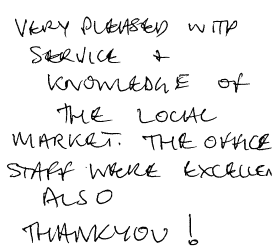 VERY PLEASED WITH
SERVICE &
KNOWLEDGE OF
THE LOCAL
MARKET. THE OFFICE
STAFF WERE EXCELLEN
ALSO
THANKYOU!